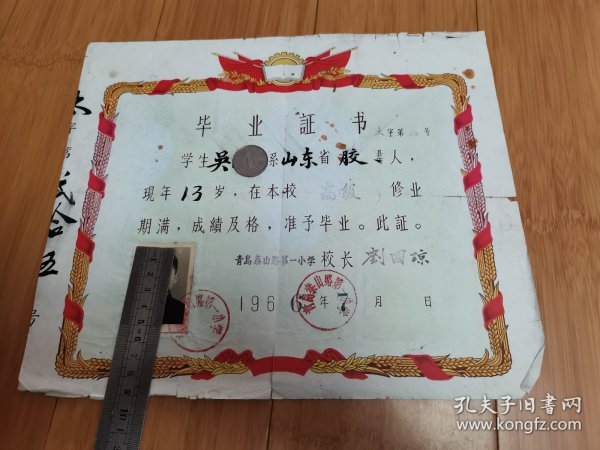 毕业証书
太字第 号
学生吴 系山东省胶县人，
現年13岁，在本校高级，修业
期满，成績及格，准予毕业。此証。
青島泰山路第一小学 校长
196 年 月 日
字第 贰拾五号
孔夫子旧書网
www.kongfz.com